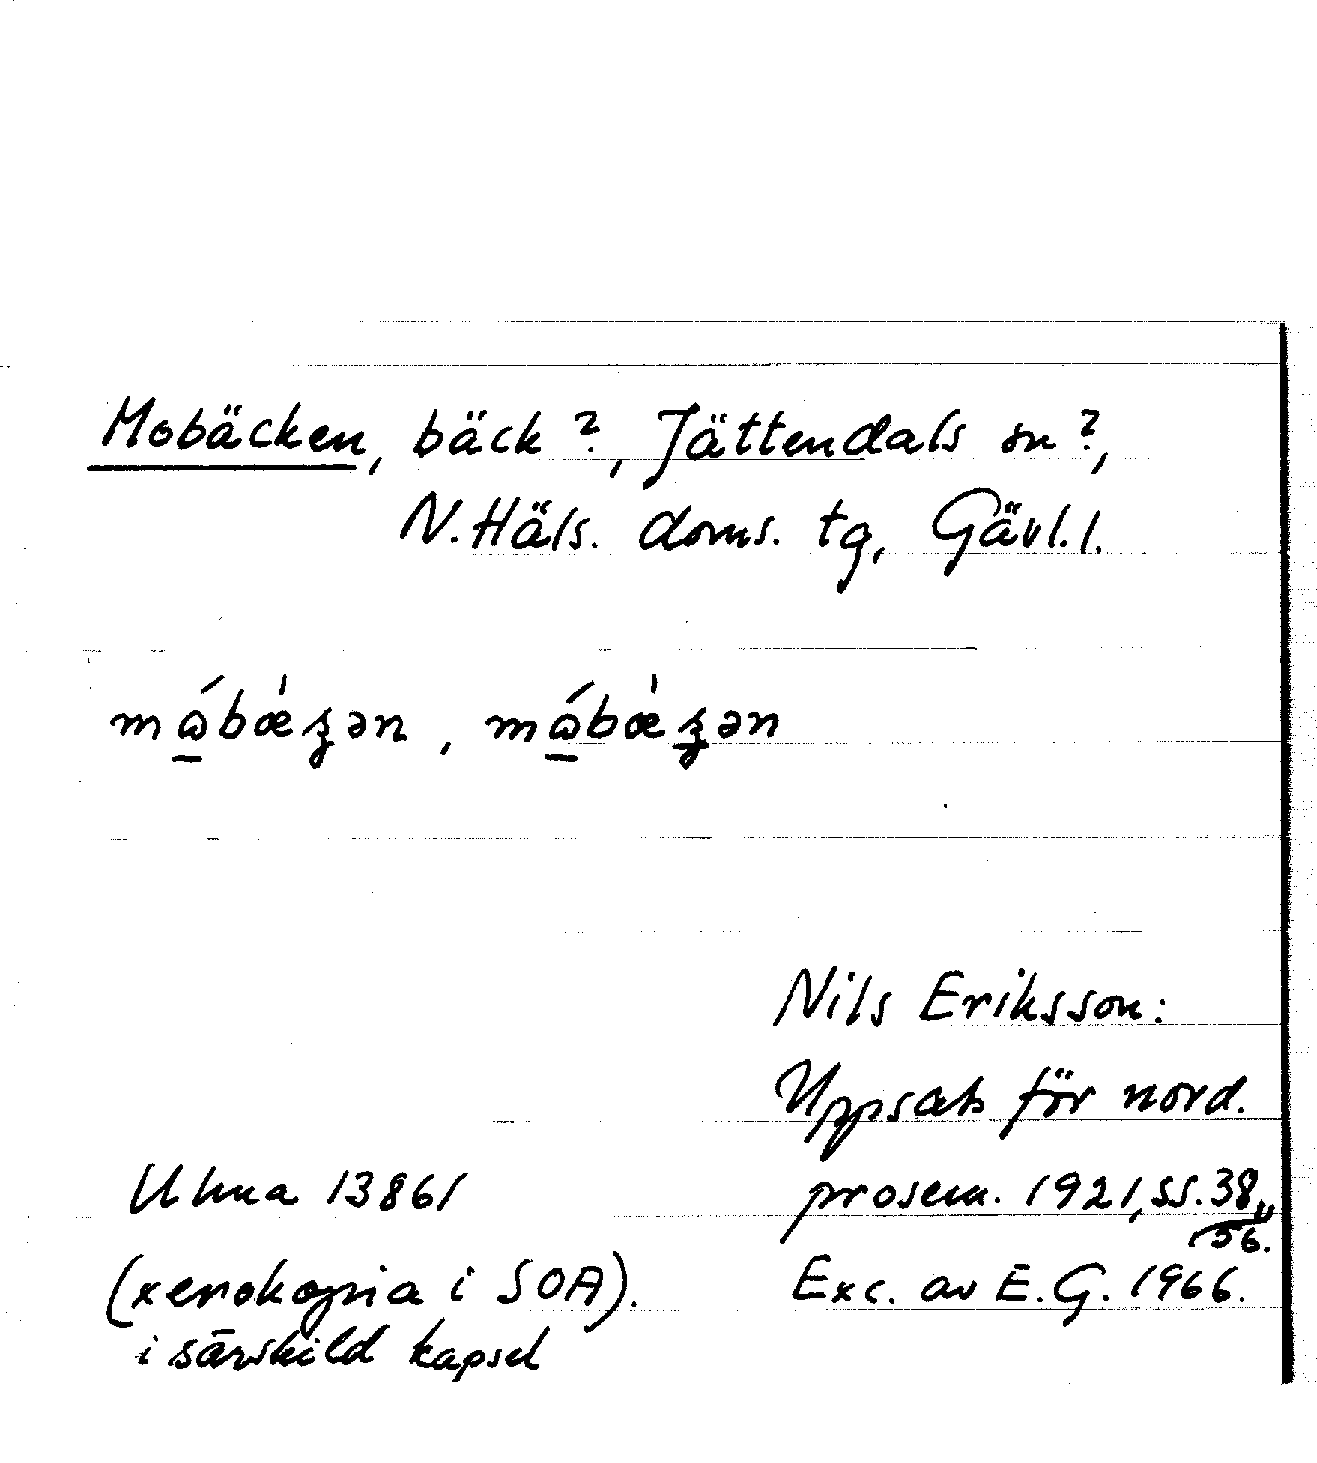 Mobäcken, bäck?, Jättendals sn?,
N.Häls. doms. tg, Gävl.l.
Nils Eriksson:
Uppsats för nord.
prosem. 1921, ss. 38,
56.
Ulma 13861
(xerokopia i SOA).
i särskild kapsel
Exc. av E.G. 1966.